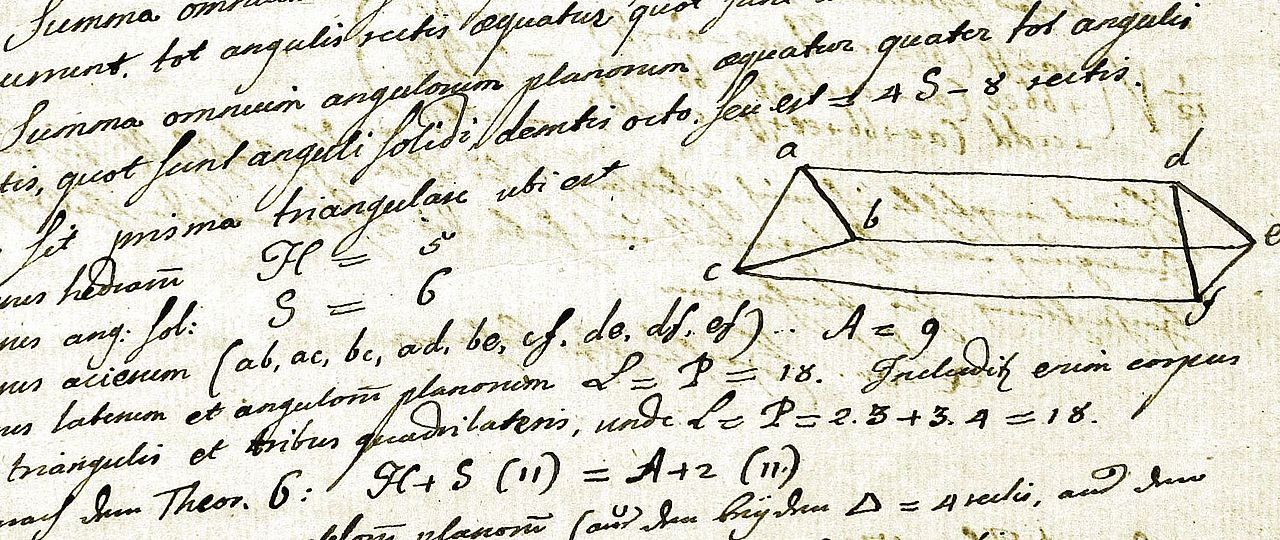 Summa omnium
currunt. tot angulis rectis æquatur quot sunt
Summa omnium angulorum planorum æquatur quater tot angulis
tis, quot sunt anguli solidi, demtis octo. seu est = 4 S – 8 rectis.
Sit prisma triangulare ubi est
rus hedrarum̄ H = 5
rus ang: sol: S = 6
rus acierum (ab, ac, bc, ad, be, cf, de, df, ef) .. A = 9
rus laterum et angulorum̄ planorum L = P = 18. Includitur enim corpus
triangulis et tribus quadrilateris, unde L = P = 2.3 + 3.4 = 18.
nach dem Theor. 6: H + S (11) = A + 2 (11)
planorum̄ (aus den beyden Δ = 4 rectis, aus den
a
d
b
e
c
f